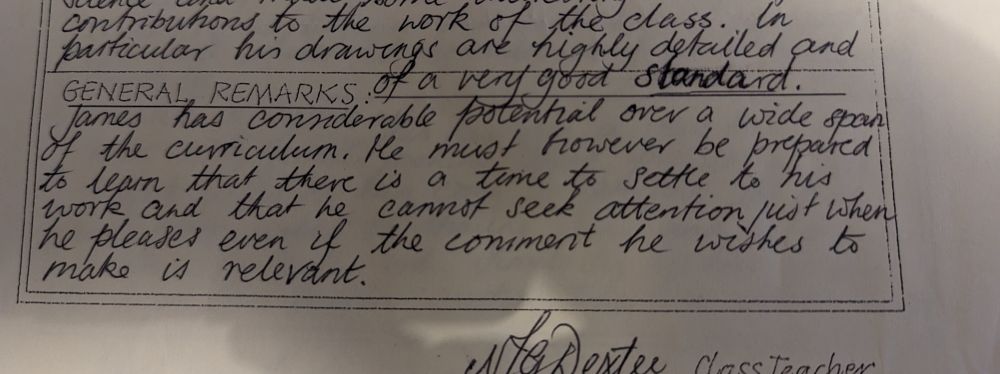 contributions to the work of the class. In
particular his drawings are highly detailed and
of a very good standard.
GENERAL REMARKS:
James has considerable potential over a wide span
of the curriculum. He must however be prepared
to learn that there is a time to settle to his
work and that he cannot seek attention just when
he pleases even if the comment he wishes to
make is relevant.
Dexter Class Teacher